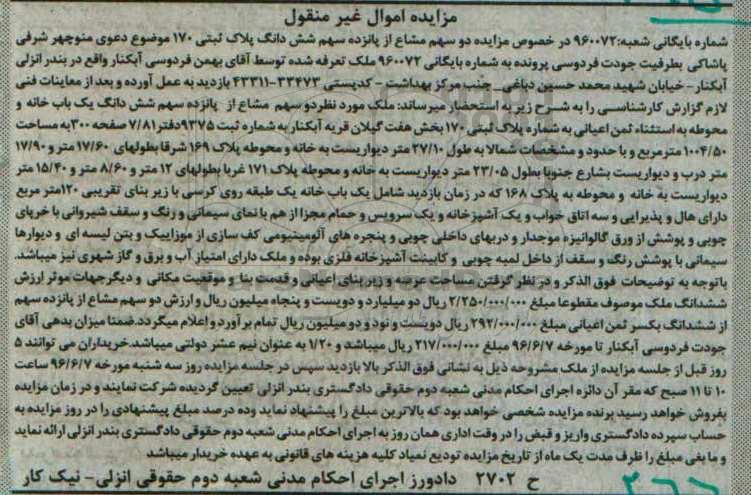 مزایده اموال غیر منقول
شماره بایگانی شعبه:۹۶۰۰۷۲ در خصوص مزایده دو سهم مشاع از پانزده سهم شش دانگ پلاک ثبتی ۱۷۰ موضوع دعوی منوچهر شرفی
پاشاکی بطرفیت جودت فردوسی پرونده به شماره بایگانی ۹۶۰۰۷۲ ملک تعرفه شده توسط آقای بهمن فردوسی آبکنار واقع در بندر انزلی
آبکنار - خیابان شهید محمد حسین دباغی_ جنب مرکز بهداشت - کدپستی ۳۳۴۷۳-۴۳۳۱۱ بازدید به عمل آورده و بعد از معاینات فنی
لازم گزارش کارشناسی را به شرح زیر به استحضار میرساند: ملک مورد نظر دو سهم مشاع از پانزده سهم شش دانگ یک باب خانه و
محوطه به استثناء ثمن اعیانی به شماره پلاک ثبتی ۱۷۰ بخش هفت گیلان قریه آبکنار به شماره ثبت ۹۳۷۵ دفتر ۷/۸۱ صفحه ۳۰۰ به مساحت
۱۰۰۴/۵۰ مترمربع و با حدود و مشخصات شمالا به طول ۲۷/۱۰ متر دیواریست به خانه و محوطه پلاک ۱۶۹ شرقا بطولهای ۱۷/۶۰ متر و ۱۷/۹۰
متر درب و دیواریست بشارع جنوبا بطول ۲۳/۰۵ متر دیواریست به خانه و محوطه پلاک ۱۷۱ غربا بطولهای ۱۲ متر و ۸/۶۰ متر و ۱۵/۴۰ متر
دیواریست به خانه و محوطه به پلاک ۱۶۸ که در زمان بازدید شامل یک باب خانه یک طبقه روی کرسی با زیر بنای تقریبی ۱۲۰متر مربع
دارای هال و پذیرایی و سه اتاق خواب و یک آشپزخانه و یک سرویس و حمام مجزا از هم با نمای سیمانی و رنگ و سقف شیروانی با خرپای
چوبی و پوشش از ورق گالوانیزه موجدار و دربهای داخلی چوبی و پنجره های آلومینیومی کف سازی از موزاییک و بتن لیسه ای و دیوارها
سیمانی با پوشش رنگ و سقف از داخل لمبه چوبی و کابینت آشپزخانه فلزی بوده و ملک دارای امتیاز آب و برق و گاز شهری نیز میباشد.
باتوجه به توضیحات فوق الذکر و در نظر گرفتن مساحت عرصه و زیر بنای اعیانی و قدمت بنا و موقعیت مکانی و دیگر جهات موثر ارزش
ششدانگ ملک موصوف مقطوعا مبلغ ۲/۲۵۰/۰۰۰/۰۰۰ ریال دو میلیارد و دویست و پنجاه میلیون ریال و ارزش دو سهم مشاع از پانزده سهم
از ششدانگ بکسر ثمن اعیانی مبلغ ۲۹۲/۰۰۰/۰۰۰ ریال دویست و نود و دو میلیون ریال تمام بر آورد و اعلام میگردد.ضمنا میزان بدهی آقای
جودت فردوسی آبکنار تا مورخه ۹۶/۶/۷ مبلغ ۲۱۷/۰۰۰/۰۰۰ ریال میباشد و ۱/۲۰ به عنوان نیم عشر دولتی میباشد.خریداران می توانند ۵
روز قبل از جلسه مزایده از ملک مشروحه ذیل به نشانی فوق الذکر بالا بازدید سپس در جلسه مزایده روز سه شنبه مورخه ۹۶/۶/۷ ساعت
۱۰ تا ۱۱ صبح که مقر آن دائره اجرای احکام مدنی شعبه دوم حقوقی دادگستری بندر انزلی تعیین گردیده شرکت نمایند و در زمان مزایده
بفروش خواهد رسید برنده مزایده شخصی خواهد بود که بالاترین مبلغ را پیشنهاد نماید وده درصد مبلغ پیشنهادی را در روز مزایده به
حساب سپرده دادگستری واریز و قبض را در وقت اداری همان روز به اجرای احکام مدنی شعبه دوم حقوقی دادگستری بندر انزلی ارائه نماید
و مابقی مبلغ را ظرف مدت یک ماه از تاریخ مزایده تودیع نمیاد کلیه هزینه های قانونی به عهده خریدار میباشد
ح ۲۷۰۲ دادورز اجرای احکام مدنی شعبه دوم حقوقی انزلی- نیک کار